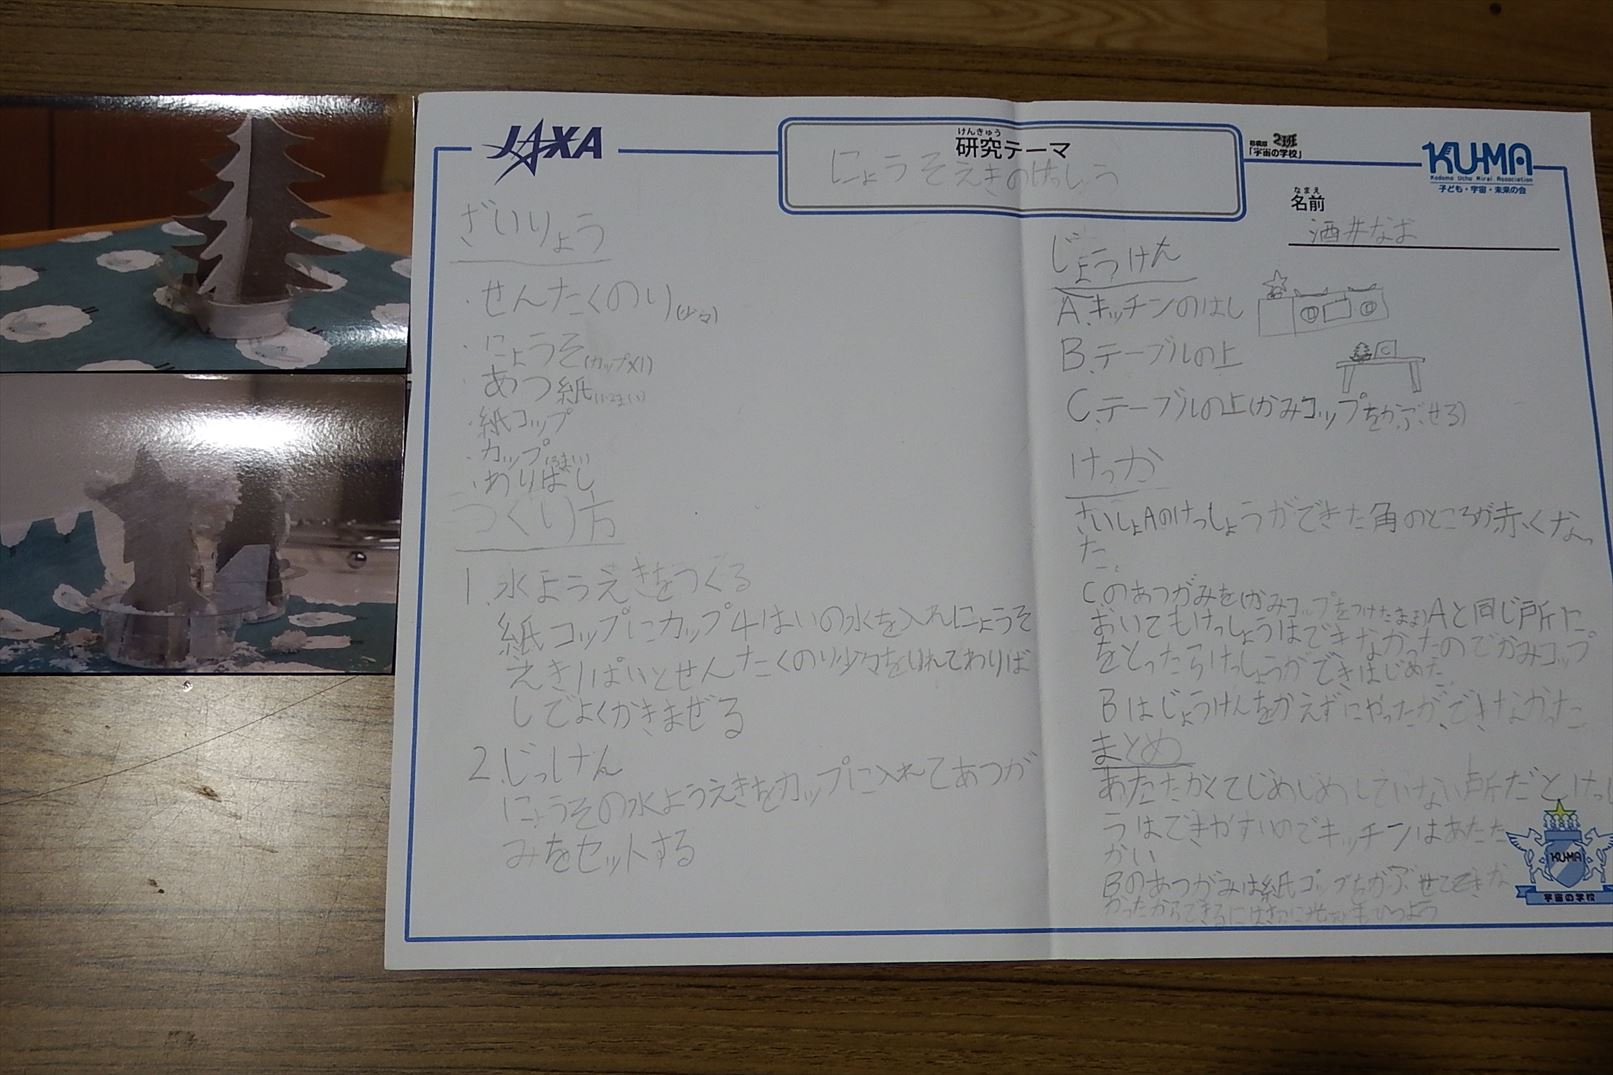 JAXA
けんきゅう
研究テーマ
にょうそえきのけっしょう
「宇宙の学校」
KU-MA
Kodomo Uchu Mirai Association
子ども・宇宙・未来の会
なまえ
名前
酒井なお
ざいりょう
・せんたくのり(少々)
・にょうそ(カップ×1)
・あつ紙
・紙コップ
・カップ
・わりばし
つくり方
1. 水ようえきをつくる
紙コップにカップ4はいの水を入れにょうそ
えき1ぱいとせんたくのり少々をいれてわりば
しでよくかきまぜる
2. じっけん
にょうその水ようえきをカップに入れてあつが
みをセットする
じょうけん
A.キッチンのはし
B.テーブルの上
C.テーブルの上(かみコップをかぶせる)
C
けっか
さいしょAのけっしょうができた角のところが赤くなっ
た。
Cのあつがみを(かみコップをつけたまま)Aと同じ所に
おいてもけっしょうはできなかったのでかみコップ
をとったらけっしょうができはじめた
Bはじょうけんをかえずにやったが、できなかった
まとめ
あたたかくてじめじめしていない所だとけっし
うはできやすいのでキッチンはあたた
かい
Bのあつがみは紙コップをかぶせてできな
かったからできるには
KU-MA
宇宙の学校